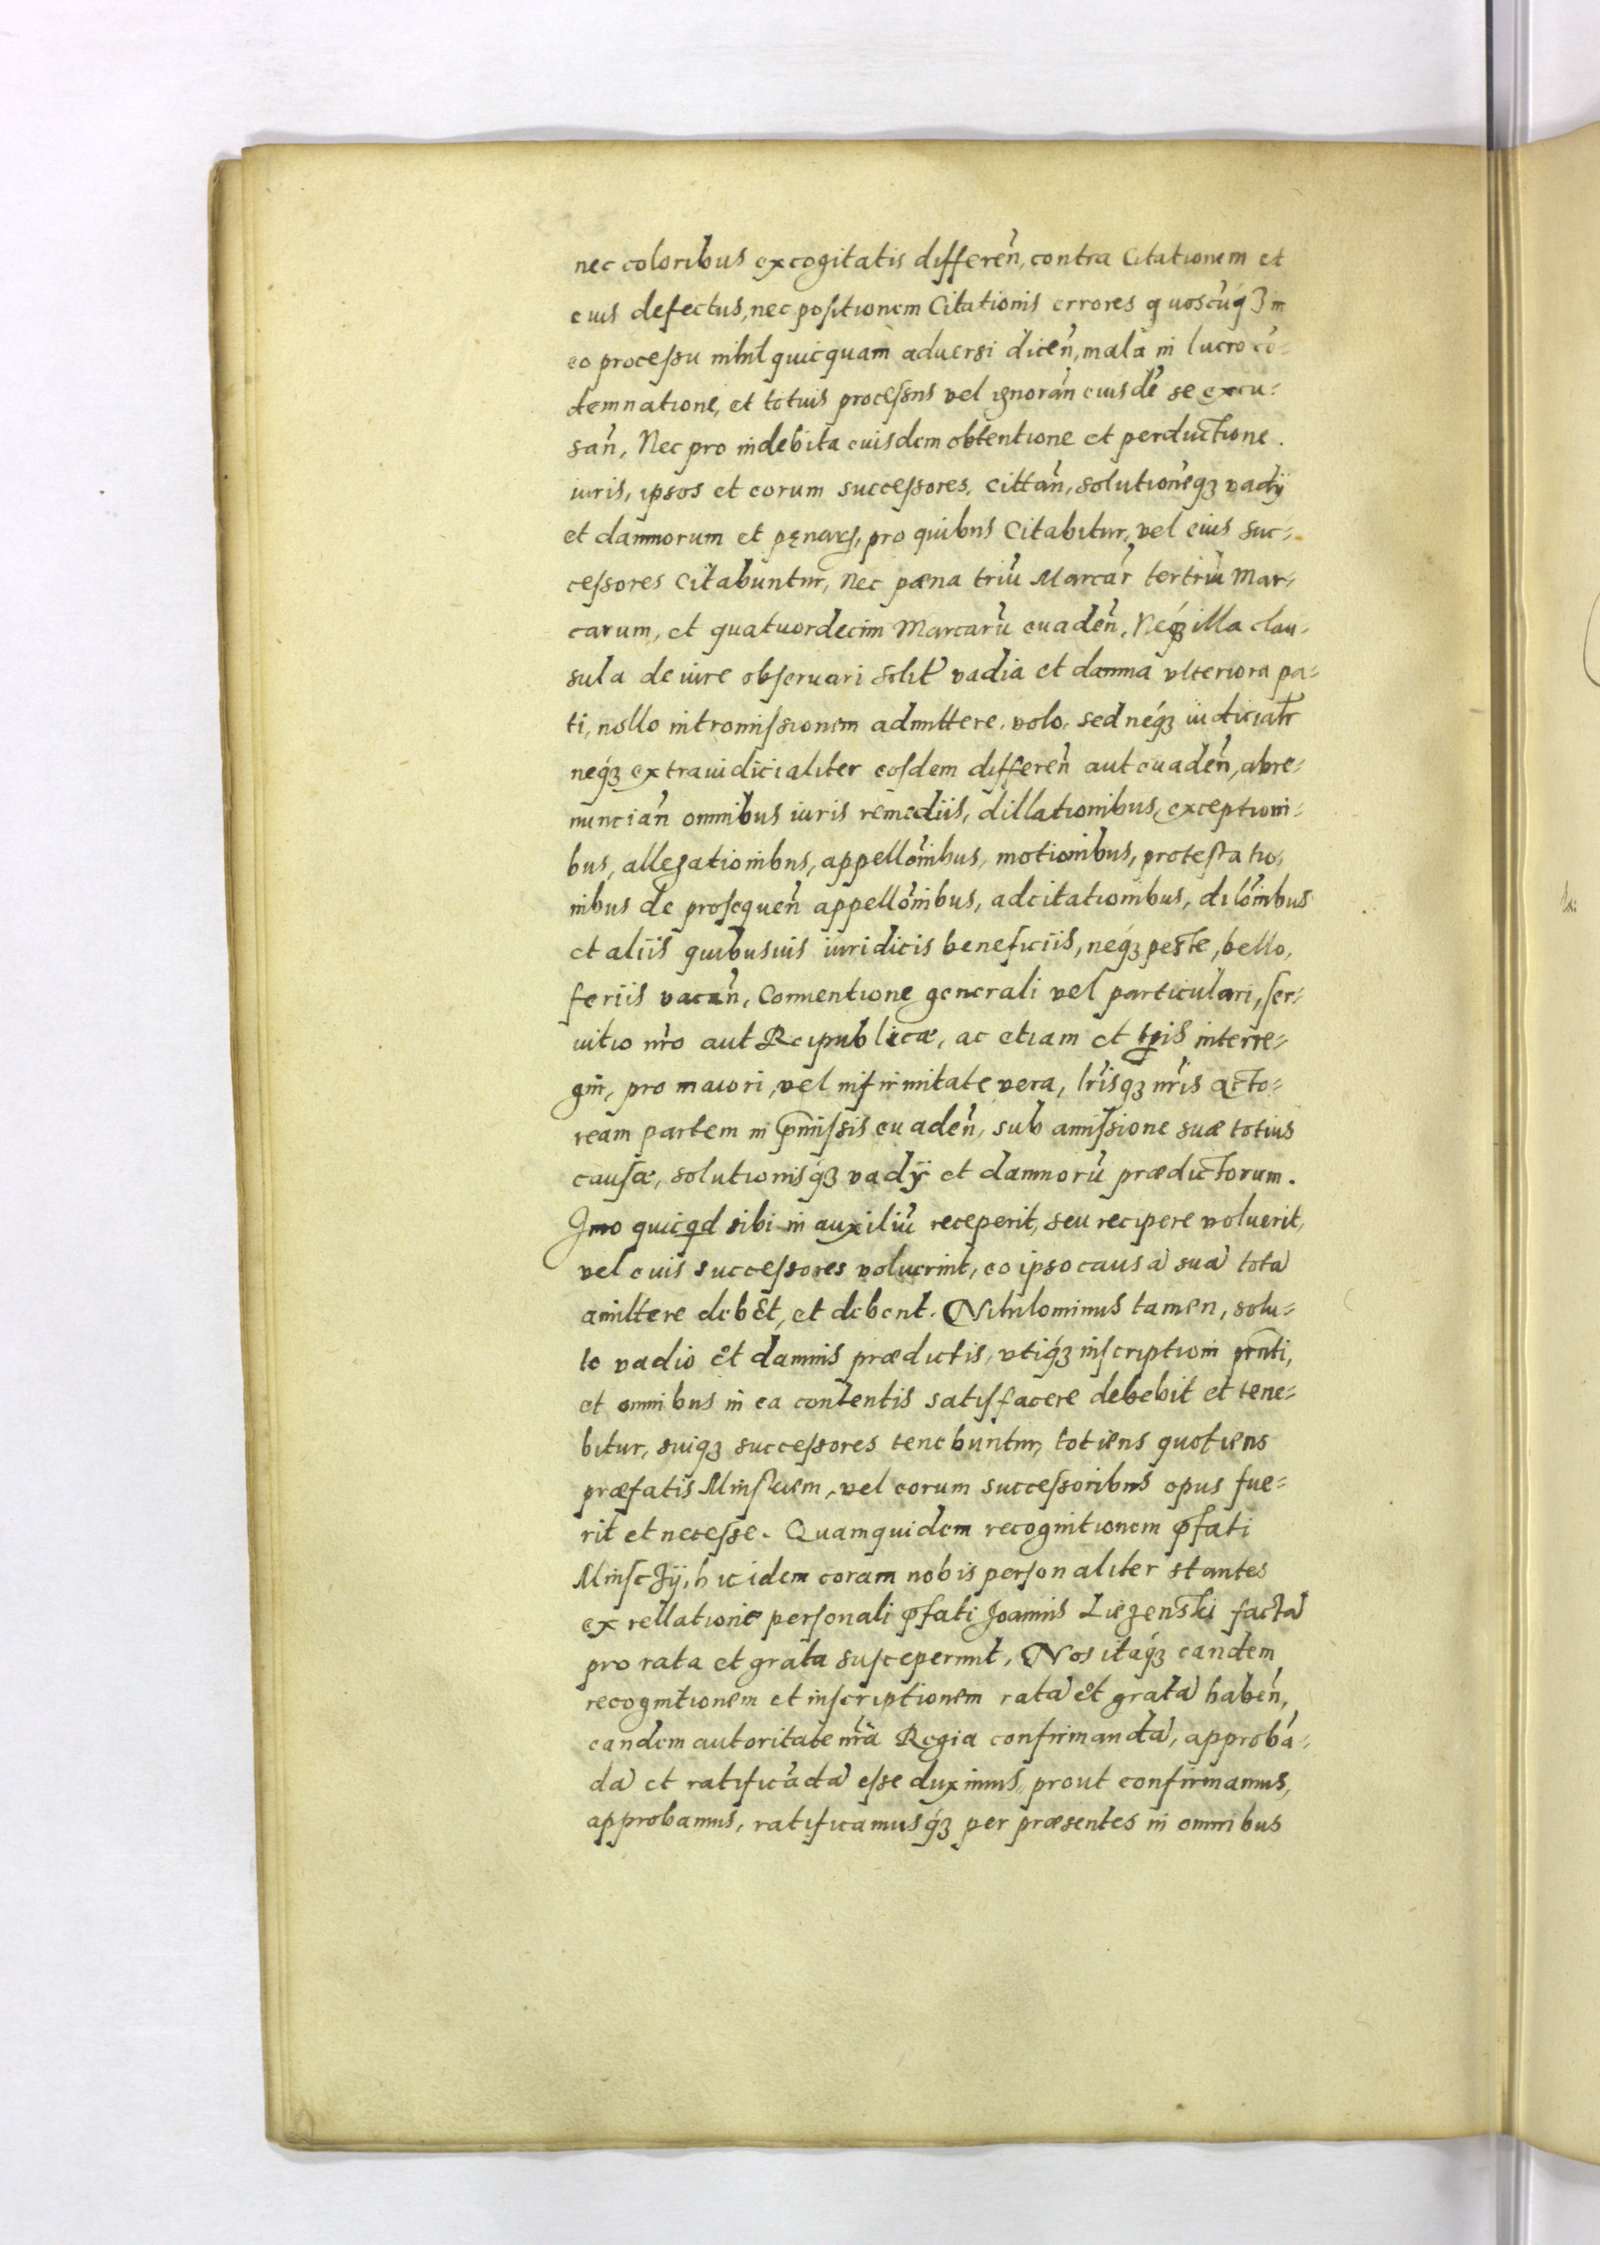 nec coloribus excogitatis differen̄, contra Citationem et
eius defectus, nec positionem Citationis errores quoscūqʒ in
eo processu nihil quicquam aduersi dicen̄, mala in lucro cō-
demnatione, et totius processus vel ignoran̄ eiusdē se excu-
san̄, Nec pro indebita eiusdem obtentione et perductione.
iuris, ipsos et eorum successores, cittan̄, solutionēqʒ vadÿ
et damnorum et pęnarū, pro quibus Citabitur, vel eius suc-
cessores Citabuntur, nec pæna triū Marcar̄ ter triū Mar-
carum, et quatuordecim Marcarū euaden̄, Neqʒ illa clau-
sula de iure obseruari solit̄ vadia et damna vlteriora pa-
ti, nollo intromissionem admittere volo, sed neqʒ iudicialr̄
neqʒ extraiudicialiter eosdem differen̄ aut euaden̄, abre-
nuncian̄ omnibus iuris remediis, dillationibus, exception-
bus, allegationibus, appellōnibus, motionibus, protestatio-
nibus de prosequen̄ appellōnibus, adcitationibus, dilōnibus
et aliis quibusuis iuridicis beneficiis, neqʒ peste, bello,
feriis vacan̄, Conuentione generali vel particulari, ser-
uitio nr̄o aut Reipublicæ, ac etiam et tp̄is interre-
gni, pro maiori, vel infirmitate vera, lr̄isqʒ nr̄is acto-
ream partem in p̄missis euaden̄, sub amissione suæ totius
causæ, solutionisqʒ vadÿ et damnorū prædictorum.
Imo quicqd sibi in auxiliū receperit, seu recipere voluerit,
vel euis successores voluerint, eo ipso causā suā totā
amittere debet, et debent. Nihilominus tamen, solu-
to vadio et damnis prædictis, vtiqʒ inscriptioni pn̄ti,
et omnibus in ea contentis satisfacere debebit et tene-
bitur, suiqʒ successores tenebuntur, totiens quotiens
præfatis Minsciem, vel eorum successoribus opus fue-
rit et necesse. Quamquidem recognitionem p̄fati
Minscÿ, hic idem coram nobis personaliter stantes
ex rellatione personali p̄fati Joannis Liezenski factā
pro rata et grata susceperunt, Nos itaqʒ eandem
recognitionem et inscriptionem ratā et gratā haben̄,
eandem autoritate nr̄a Regia confirmandā, approbā-
dā et ratificādā esse duximus, prout confirmamus,
approbamus, ratificamusqʒ per præsentes in omnibus